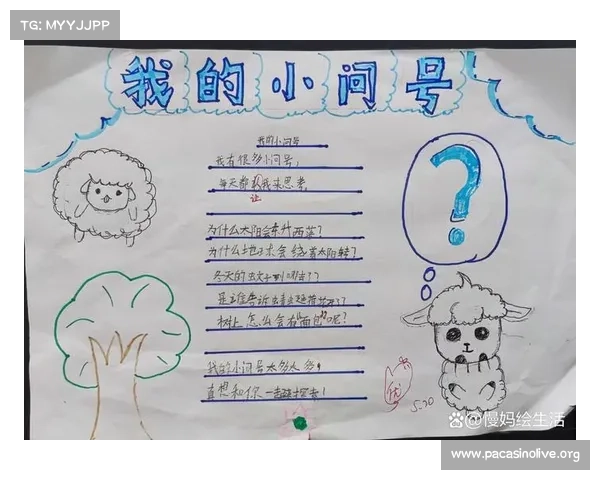 TG: MYYJJPP
我的小问号
我的小问号
我有很多小问号,
每天都让我来思考,
为什么太阳会东升西落?
为什么地球会绕着太阳转?
冬天的蚊子到哪去了?
是谁告诉
树上怎么会有"面包"呢?
我的小问号太多太多,
真想和你一起探索!
?
优
5.20
@慢妈绘生活
www.pacasinolive.org